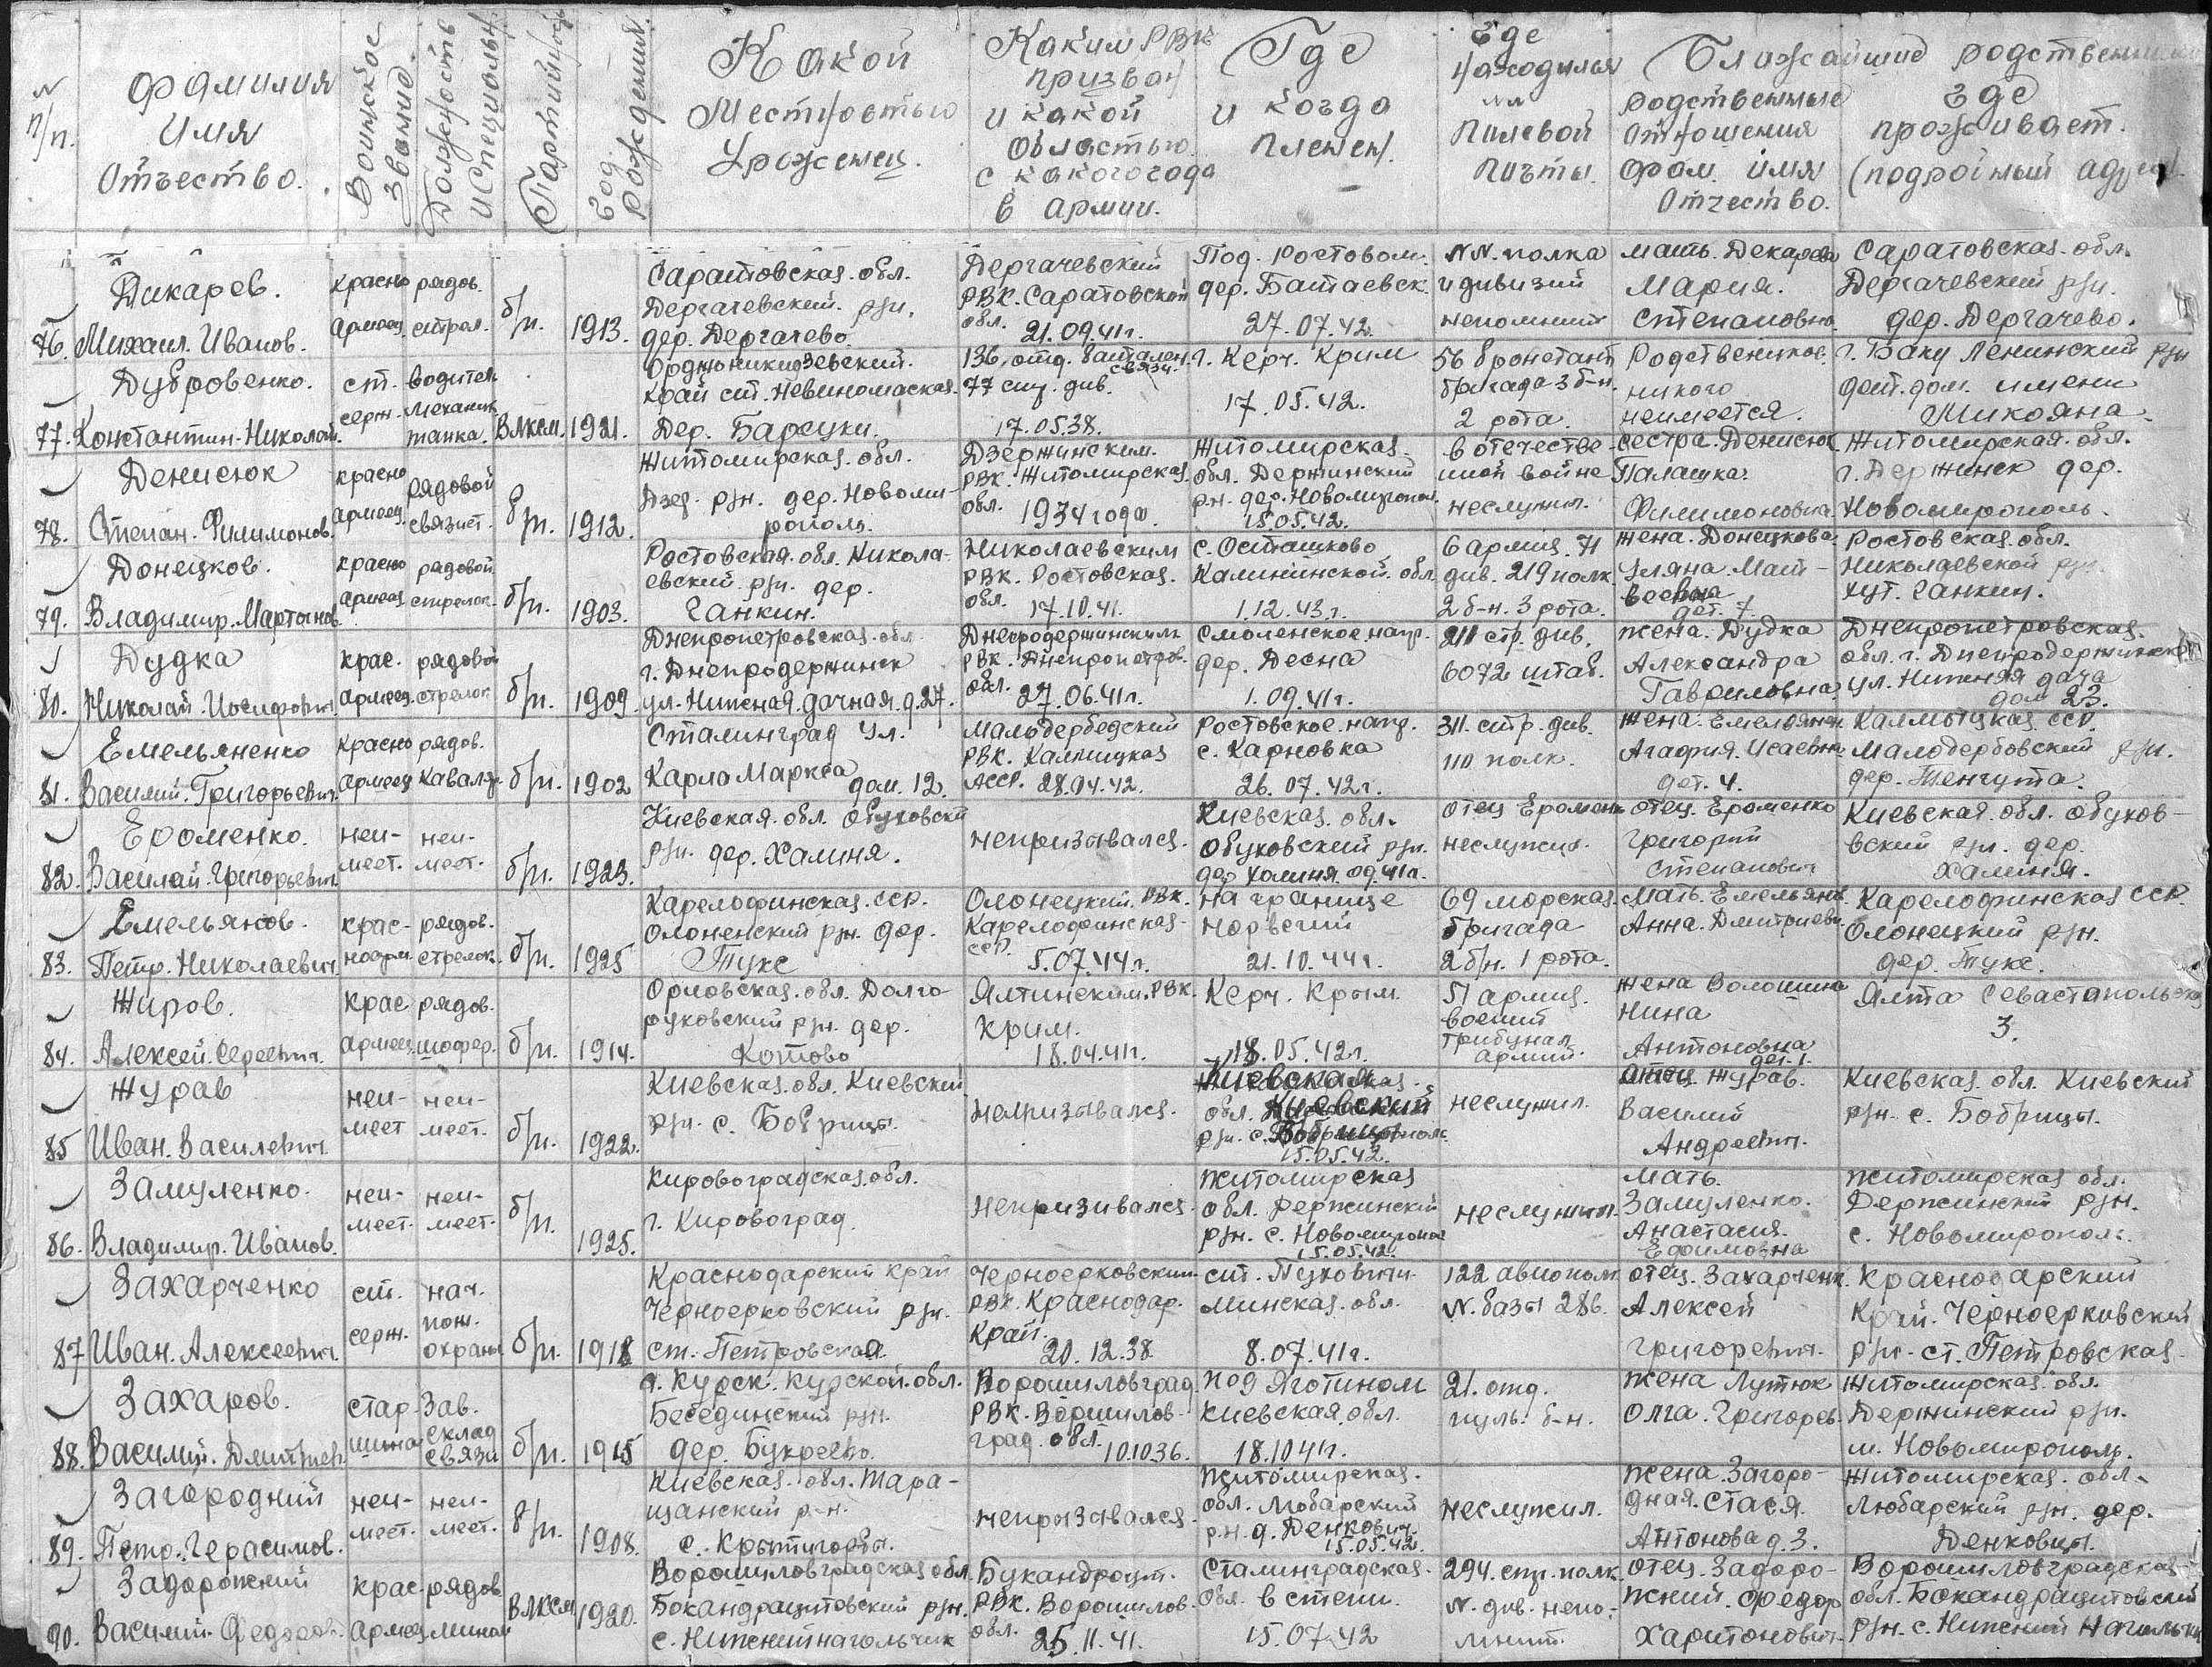 N п/п.
Фамилия Имя Отчество.
Воинское звание.
Должность и Специальн.
Партийность
Год. Рождения.
Какой Местностью Уроженец.
Каким РВК призван и какой областью с какого года в армии.
Где и когда Пленен.
Где находилья NN Полевой Почты.
Ближайшие родственники
родственные отношения фам. имя Отчество.
где проживает. (подробный адрес)
76. Дикарев. Михаил. Иванов.
красно армеец
рядов. стрел.
б/п.
1913.
Саратовская. обл. Дергачевский. р/н. дер. Дергачево
Дергачевский РВК. Саратовской обл. 21.09.41г.
Под. Ростовом. дер. Батаевск. 27.07.42.
NN. полка и дивизий непомнит
мать. Декарева Мария. Степановна.
Саратовская. обл. Дергачевский р/н. дер. Дергачево.
77. Дубровенко. Константин. Николай.
ст. серж.
водител механик танка.
ВЛКСМ.
1921.
Орджоникидзевский. край ст. Невиномаская. Дер. Барсуки.
136. отд. батален. связи. 77 див. 17.05.38.
г. Керч. Крим 17.05.42.
56 бронетанк бригада 3 б-н. 2 рота.
Родствеников. никого неимеется.
г. Баку Ленинский р/н дет. дом. имени Микояна.
78. Денисюк Степан. Филимонов.
красно армеец.
рядовой связист.
б/п.
1912.
Житомирская. обл. Дзер. р/н. дер. Новомирополь.
Дзержинским. РВК. Житомирская. обл. 1934 года.
Житомирская. обл. Держинский р-н. дер. Новомирополь. 15.05.42.
в отечественной войне неслужил.
сестра. Денисюк Палашка. Филимоновна.
Житомирская. обл. г. Держинск дер. Новомирополь.
79. Донецков. Владимир. Мартынов.
красно армеец
рядовой стрелок.
б/п.
1903.
Ростовская. обл. Николаевский. р/н. дер. Ганкин.
Николаевским РВК. Ростовская. обл. 17.10.41.
с. Осташково Калининской. обл. 1.12.43.г.
6 армия. 71 див. 219 полк. 2 б-н. 3 рота.
жена. Донецкова Уляна. Матвевна дет. 7.
Ростовская. обл. Николаевской р/н. хут. Ганкин.
80. Дудка Николай. Иосифович
крас. армеец.
рядовой стрелок.
б/п.
1909.
Днепропетровская. обл. г. Днепродержинск ул. Нижная. дачная. д. 27.
Днепродержинским РВК. Днепропетров. обл. 27.06.41г.
Смоленское. напр. дер. Десна 1.09.41г.
211 стр. див. 6072 штаб.
жена. Дудка Александра Гавриловна
Днепропетровская. обл. г. Днепродержинск ул. Нижняя дача дом 23.
81. Емельяненко Василий. Григорьевич.
красно армеец
рядов. кавалер.
б/п.
1902
Сталинград Ул. Карла Маркса дом. 12.
Малодербедский РВК. Калмицкая АССР. 28.04.42.
Ростовское. напр. с. Карновка 26.07.42г.
311. стр. див. 110 полк.
жена. Емельянен. Агафия. Исаевна дет. 4.
Калмыцкая. ССР. Малодербовский р/н. дер. Тенгута.
82. Ероменко. Василий. Григорьевич.
неимеет.
неимеет.
б/п.
1923.
Киевская. обл. Обуховский р/н. дер. Халиня.
непризывался.
Киевская. обл. Обуковский р/н. дер. халиня. 09.41г.
отец Ероменк неслужил.
отец. Ероменко Григорий Степанович
Киевская. обл. Обуховский р/н. дер. Халиня.
83. Емельянов. Петр. Николаевич.
красноарм.
рядов. стрелок.
б/п.
1925
Карелофинская. ССР. Олоненский р/н. дер. Тукс
Олонецкий. РВК. Карелофинская ССР. 5.07.44г.
на границе Норвегий 21.10.44г.
69 морская. бригада 2 б/н. 1 рота.
Мать. Емельянов. Анна. Дмитриевн.
Карелофинская ССР. Олонецкий р/н. дер. Тукс.
84. Жиров. Алексей. Сергеевич.
крас армеец.
рядов. шофер.
б/п.
1914.
Орловская. обл. Долгоруковский р/н. дер. Котово
Ялтинским. РВК. Крим. 18.04.41г.
Керч. Крым. 18.05.42г.
51 армия. военый трибунал армии.
жена Волошина Нина Антоновна дет. 1.
Ялта Севастопольская 3.
85 Журав Иван. Василевич.
неимеет
неимеет.
б/п.
1922.
Киевская. обл. Киевский р/н. с. Бобрицы.
непризывался.
Киевская обл. Киевский р/н. с. Бобрицы 15.05.42.
неслужил.
отец. Журав. Василий Андреевич.
Киевская. обл. Киевский р/н. с. Бобрицы.
86. Замуленко. Владимир. Иванов.
неимеет.
неимеет.
б/п.
1925.
Кировоградская. обл. г. Кировоград.
непризивался.
Житомирская обл. Держинский р/н. с. Новомирополь 15.05.42.
неслужил.
мать. Замуленко. Анастасия. Ефимовна
Житомирская обл. Держинский р/н. с. Новомирополь.
87 Захарченко Иван. Алексеевич.
ст. серж.
нач. пож. охраны
б/п.
1918
Краснодарский край Черноерковский р/н. ст. Петровская.
Черноерковский. РВК. Краснодар. край. 20.12.38
ст. Пуховичи. Минская. обл. 8.07.41г.
122 авиополк N. базы 286.
отец. Захарченк. Алексей Григоревич.
Краснодарский Край. Черноерковский р/н. ст. Петровская.
88. Захаров. Василий. Дмитриев.
старшина
Зав. склад связи
б/п.
1915
г. Курск. Курской. обл. Бесединский р/н. дер. Букреево.
Ворошиловград. РВК. Ворошиловград. обл. 10.10.36.
под Яготином Киевская. обл. 18.10 41г.
21. отд. пуль. б-н.
жена Лутюк Олга. Григорев.
Житомирская. обл. Держинский р/н. м. Новомирополь.
89. Загородний Петр. Герасимов.
неимеет.
неимеет.
б/п.
1908.
Киевская. обл. Таращанский р-н. с. Крытигорбы.
непризывался.
Житомирская. обл. Любарский р.н. д. Денкович. 15.05.42.
неслужил.
жена. Загородная. Стася. Антонова д. 3.
Житомирская. обл. Любарский р/н. дер. Денковцы.
90. Задорожний Василий. Федоров.
крас армеец
рядов мином
ВЛКСМ
1920.
Ворошиловградская обл. Бокандрацитовский р/н. с. Нижнийнагольчик
Букандроцит. РВК. Ворошилов. обл. 25.11.41.
Сталинградская. обл. в степи. 15.07.42
294. стр. полк. N. див. непомнит.
отец. Задорожний. Федор Харитонович.
Ворошиловградская обл. Бокандрацитовский р/н. с. Нижний Нагольчик